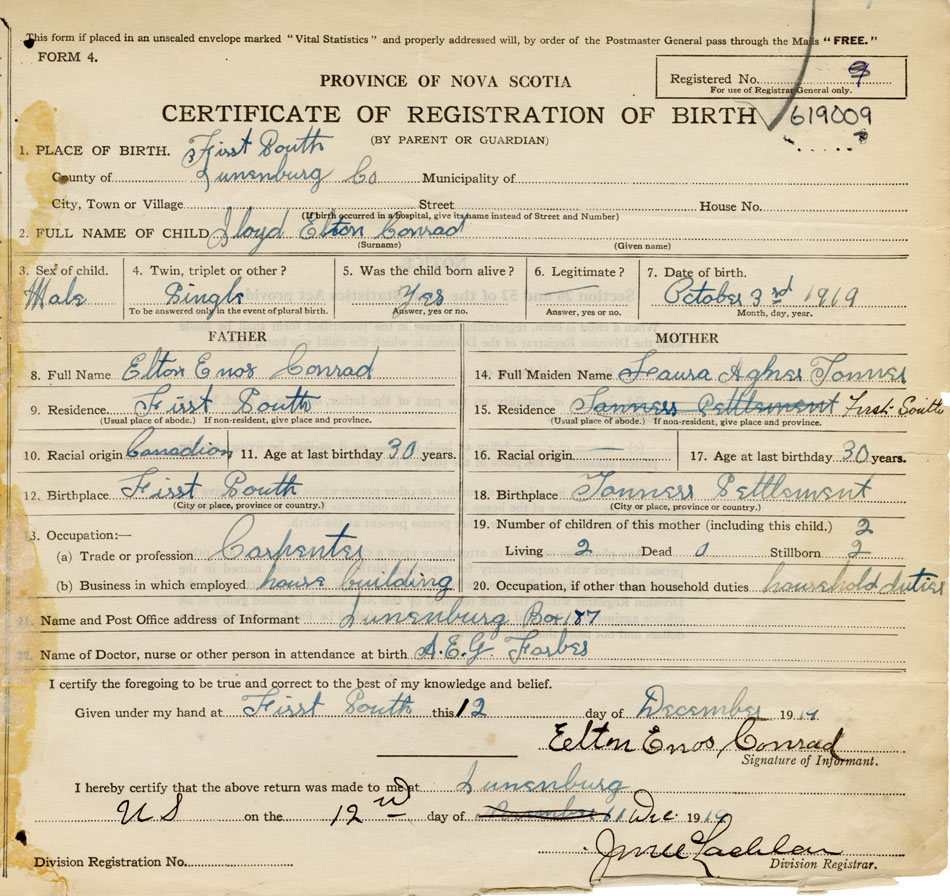 This form if placed in an unsealed envelope marked "Vital Statistics" and properly addressed will, by order of the Postmaster General pass through the Mails "FREE."
FORM 4.
Registered No. 9
For use of Registrar General only.
PROVINCE OF NOVA SCOTIA
CERTIFICATE OF REGISTRATION OF BIRTH 619009
(BY PARENT OR GUARDIAN)
1. PLACE OF BIRTH. First South
County of Lunenburg Co Municipality of
City, Town or Village Street House No.
(If birth occurred in a hospital, give its name instead of Street and Number)
2. FULL NAME OF CHILD Lloyd Elton Conrad
(Surname) (Given name)
3. Sex of child. 4. Twin, triplet or other? 5. Was the child born alive? 6. Legitimate? 7. Date of birth.
Male Single Yes — October 3rd 1919
To be answered only in the event of plural birth. Answer, yes or no. Answer, yes or no. Month, day, year.
FATHER MOTHER
8. Full Name Elton Enos Conrad 14. Full Maiden Name Laura Agnes Tanner
9. Residence First South 15. Residence Tanners Settlement First South
(Usual place of abode.) If non-resident, give place and province. (Usual place of abode.) If non-resident, give place and province.
10. Racial origin Canadian 11. Age at last birthday 30 years. 16. Racial origin — 17. Age at last birthday 30 years.
12. Birthplace First South 18. Birthplace Tanners Settlement
(City or place, province or country.) (City or place, province or country.)
13. Occupation:— 19. Number of children of this mother (including this child.) 2
(a) Trade or profession Carpenter Living 2 Dead 0 Stillborn 2
(b) Business in which employed house building 20. Occupation, if other than household duties household duties
21. Name and Post Office address of Informant Lunenburg Box 187
22. Name of Doctor, nurse or other person in attendance at birth A.E.G. Forbes
I certify the foregoing to be true and correct to the best of my knowledge and belief.
Given under my hand at First South this 12 day of December 19
Eelton Enos Conrad
Signature of Informant.
I hereby certify that the above return was made to me at Lunenburg
NS on the 12 day of Dec. 19
Division Registration No. Division Registrar.